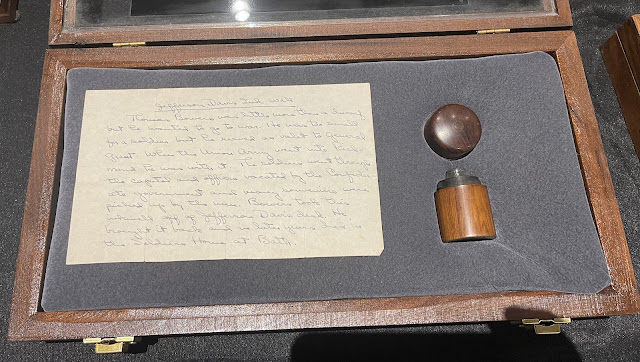 Jefferson Davis Ink well
Thomas Bowers was little more than a dwarf
but he wanted to go to war. He was too small
for a soldier but he served as valet to General
Grant. When the Union Army went into Rich
mond he was with it. The soldiers went through
the capitol and offices vacated by the Confeder
ate government and many souvenirs were
picked up by the men. Bowers took this
inkwell off of Jefferson Davis desk. He
brought it back and in later years died in
the Soldiers Home at Bath.